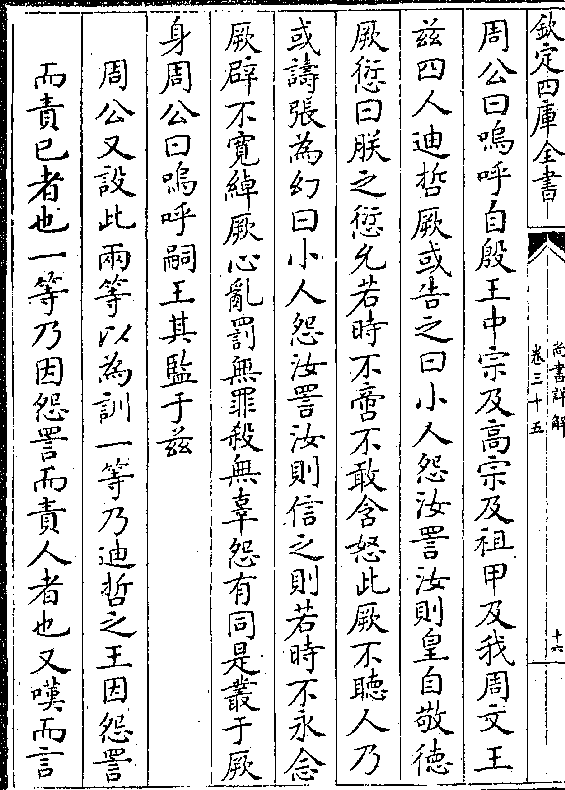 欽定四庫全書
尚書詳解
卷三十五
十六
周公曰嗚呼自殷王中宗及高宗及祖甲及我周文王
兹四人迪哲厥或告之曰小人怨汝詈汝則皇自敬德
厥愆曰朕之愆允若時不啻不敢含怒此厥不聽人乃
或譸張為幻曰小人怨汝詈汝則信之則若時不永念
厥辟不寛綽厥心亂罰無罪殺無辜怨有同是叢于厥
身周公曰嗚呼嗣王其監于兹
周公又設此兩等以為訓一等乃迪哲之王因怨詈
而責已者也一等乃因怨詈而責人者也又嘆而言